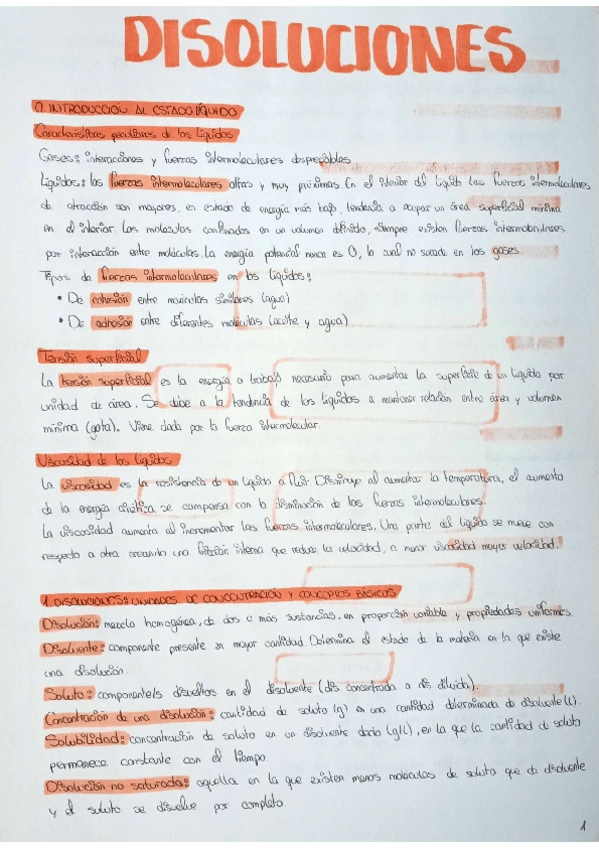 DISOLUCIONES
0. INTRODUCCIÓN AL ESTADO LÍQUIDO
Características peculiares de los líquidos
Gases: interacciones y fuerzas intermoleculares despreciables
Líquidos: las fuerzas intermoleculares altas y muy próximas. En el interior del líquido las fuerzas intermoleculares
de atracción son mayores, es estado de energía más bajo, tendencia a ocupar un área superficial mínima
en el interior. Las moléculas confinadas en un volumen definido, siempre existen fuerzas intermoleculares
por interacción entre moléculas. La energía potencial nunca es 0, lo cual no sucede en los gases
Tipos de fuerzas intermoleculares en los líquidos:
• De cohesión entre moléculas similares (agua)
• De adhesión entre diferentes moléculas (aceite y agua)
Tensión superficial
La tensión superficial es la energía o trabajo necesario para aumentar la superficie de un líquido por
unidad de área. Se debe a la tendencia de los líquidos a mantener relación entre área y volumen
mínima (gota). Viene dada por la fuerza intermolecular.
Viscosidad de los líquidos
La viscosidad es la resistencia de un líquido a fluir. Disminuye al aumentar la temperatura, el aumento
de la energía cinética se compensa con la disminución de las fuerzas intermoleculares.
La viscosidad aumenta al incrementar las fuerzas intermoleculares. Una parte del líquido se mueve con
respecto a otra creando una fricción interna que reduce la velocidad, a menor viscosidad mayor velocidad.
1. DISOLUCIONES: UNIDADES DE CONCENTRACIÓN Y CONCEPTOS BÁSICOS
Disolución: mezcla homogénea, de dos o más sustancias, en proporción variable y propiedades uniformes.
Disolvente: componente presente en mayor cantidad. Determina el estado de la materia en la que existe
una disolución.
Soluto: componente/s disueltos en el disolvente (dis concentrada o dis diluida).
Concentración de una disolución: cantidad de soluto (g) en una cantidad determinada de disolvente (L).
Solubilidad: concentración de soluto en un disolvente dado (g/L), en la que la cantidad de soluto
permanece constante con el tiempo.
Disolución no saturada: aquella en la que existen menos moléculas de soluto que de disolvente
y el soluto se disuelve por completo
1